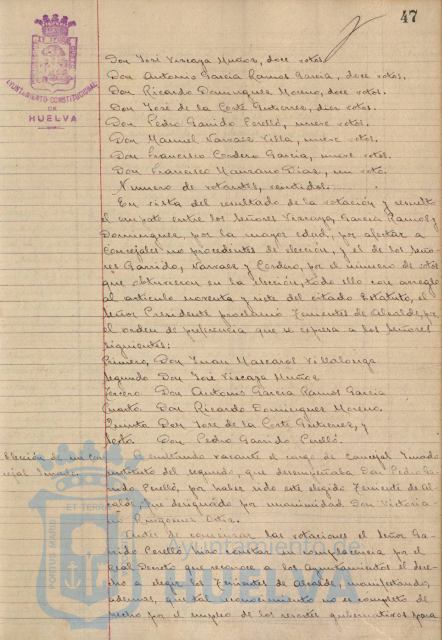 47
AYUNTAMIENTO CONSTITUCIONAL
DE
HUELVA
Don José Viscaya Muñoz, doce votos.
Don Antonio García Ramos García, doce votos.
Don Ricardo Dominguez Moreno, doce votos.
Don José de la Corte Gutierrez, diez votos.
Don Pedro Garrido Perelló, nueve votos.
Don Manuel Narvaez Villa, nueve votos.
Don Francisco Cordero García, nueve votos.
Don Francisco Manzano Díaz, un voto.
Número de votantes, veintidos.
En vista del resultado de la votación y resuelto
el empate entre los Señores Viscaya, García Ramos y
Dominguez, por la mayor edad, por afectar a
Concejales no procedentes de elección, y el de los Seño-
res Garrido, Narvaez y Cordero, por el número de votos
que obtuvieron en la elección, todo ello con arreglo
al artículo noventa y siete del citado Estatuto, el
Señor Presidente proclamó Tenientes de Alcalde, por
el orden de preferencia que se expresa a los Señores
siguientes:
Primero, Don Juan Mascarol Villalonga
Segundo Don José Viscaya Muñoz
Tercero Don Antonio García Ramos García
Cuarto Don Ricardo Dominguez Moreno
Quinto Don José de la Corte Gutierrez, y
Sexto Don Pedro Garrido Perelló.
Elección de un Con-
cejal Jurado
resultando vacante el cargo de Concejal Jurado
instituto del segundo, que desempeñaba Don Pedro Ga-
rrido Perelló, por haber sido este elegido Teniente de Al-
calde, fue designado por unanimidad Don Victoria-
no
Antes de comenzar las votaciones el Señor Ga-
rrido Perelló hizo constar su complacencia por el
Real Decreto que reconoce a los Ayuntamientos el dere-
cho a elegir los Tenientes de Alcalde, manifestando,
además, que tal reconocimiento no es completo de
hecho por el empleo de los resortes gubernativos para
PORTUS MARIS ET TERRAE
Ayuntamiento de
HUELVA